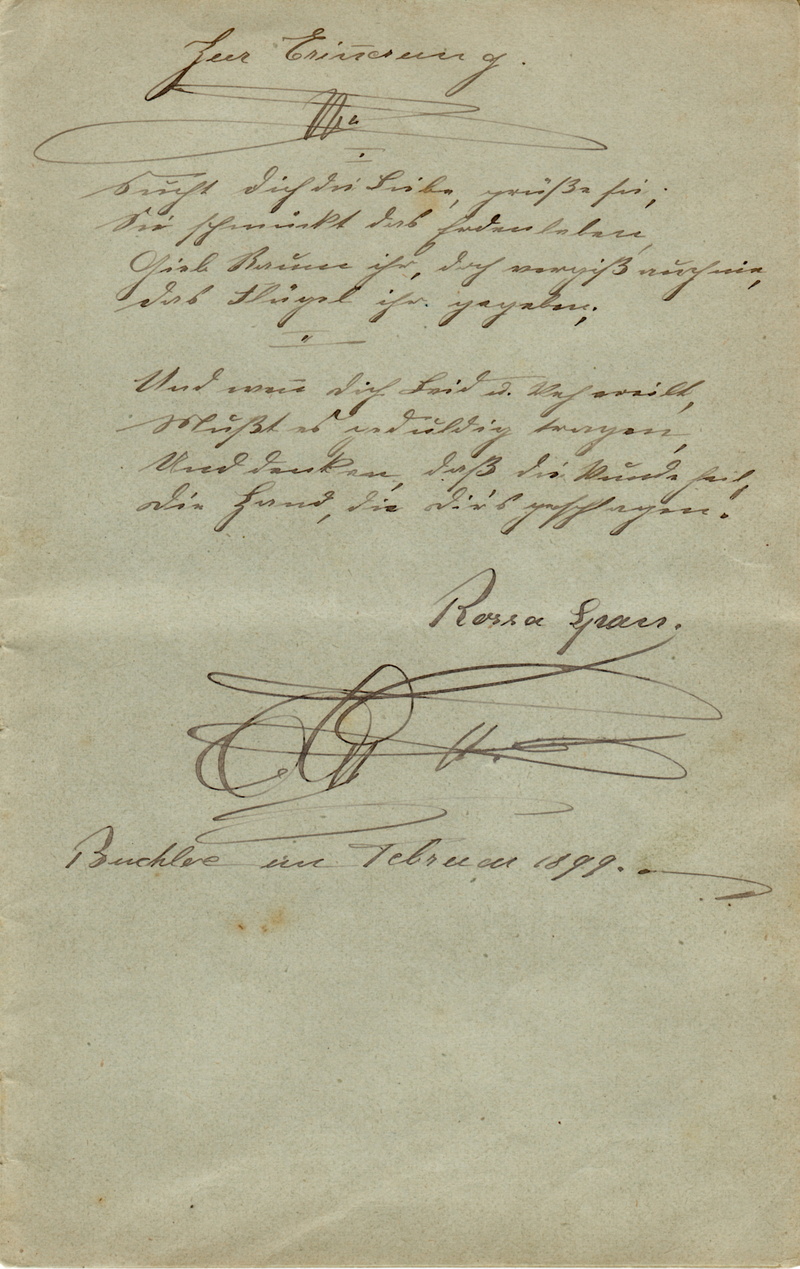 Zur Erin̄erung.
Sucht dich die Liebe, grüße sie;
Sie schmückt das Erdenleben,
Gieb Raum ihr, doch vergiß auch nie,
das Flügel ihr gegeben;
Und wen̄ dich Leid u. Weh ereilt,
Mußt es geduldig tragen,
Und denken, daß die Wunde heil,
die Hand, die dir's geschlagen.
Rossa
Buchloe im Februar 1899.